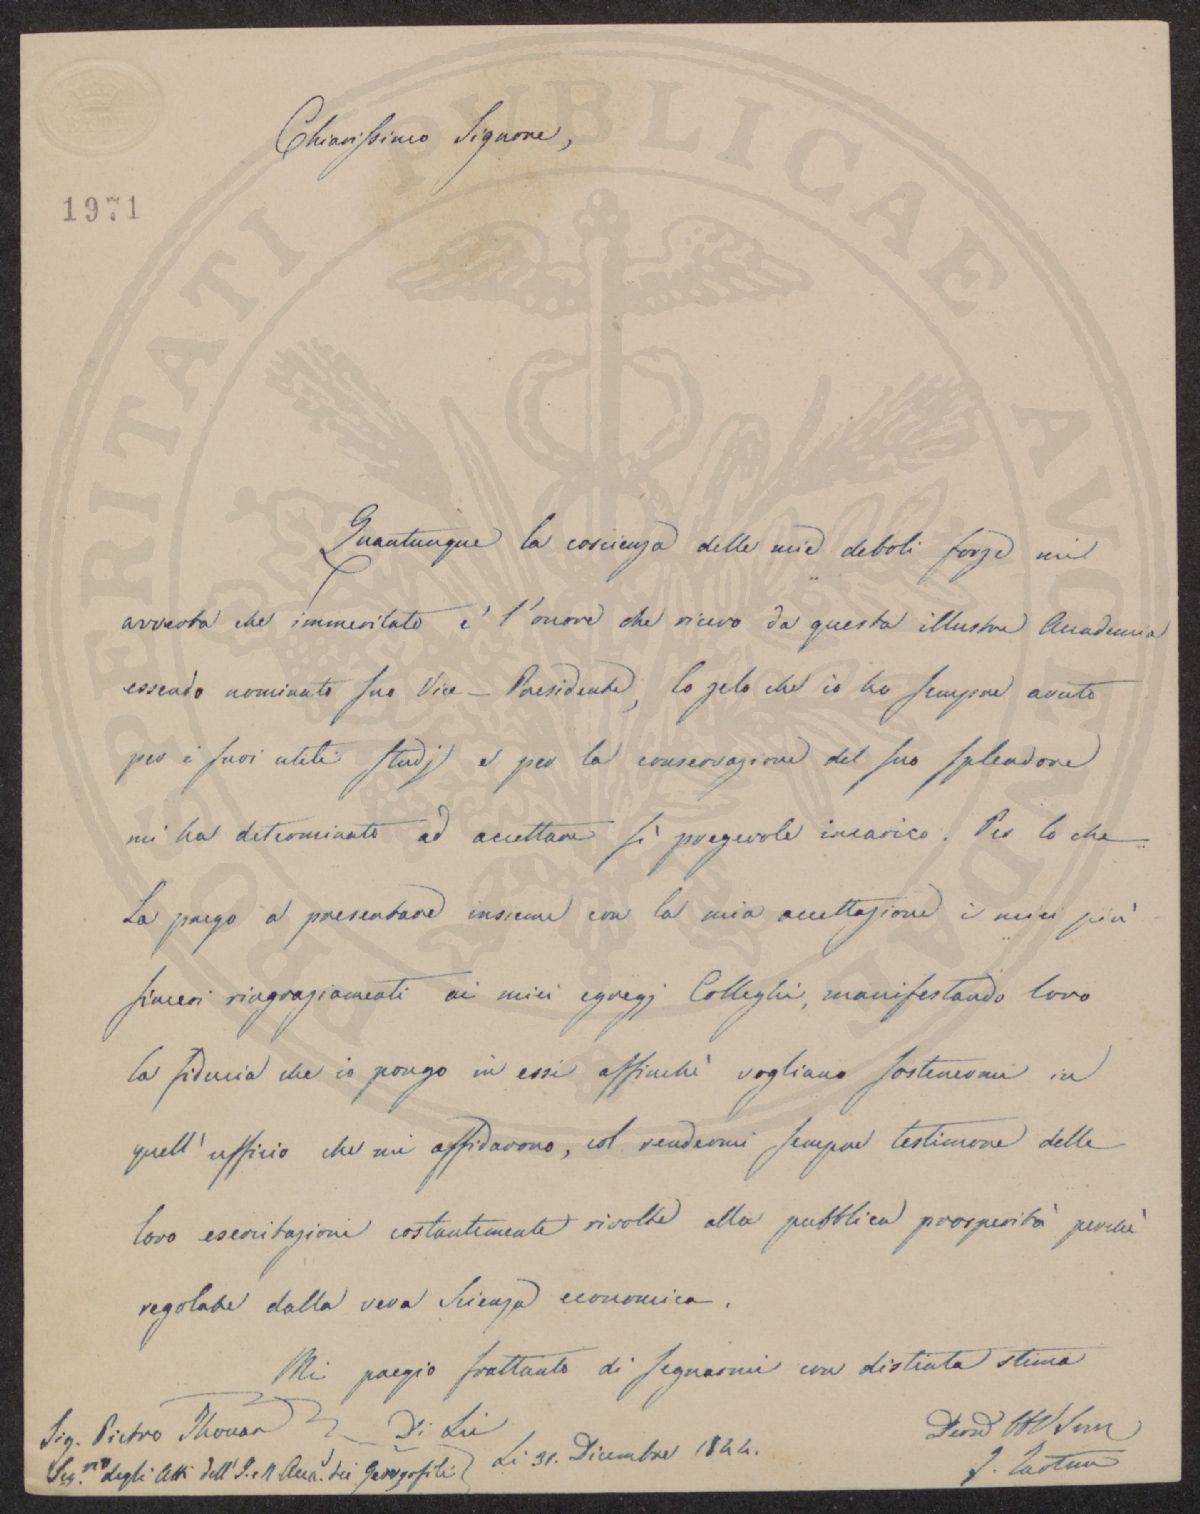 Chiarissimo Signore,
1971
Quantunque la coscienza delle mie deboli forze mi
avverta che immeritato è l'onore che ricevo da questa illustre Accademia
essendo nominato suo Vice-Presidente, lo zelo che io ho sempre avuto
per i suoi utili studj e per la conservazione del suo splendore
mi ha determinato ad accettare sì pregevole incarico. Per lo che
La prego a presentare insieme con la mia accettazione i miei più
sinceri ringraziamenti ai miei egregj Colleghi, manifestando loro
la fiducia che io pongo in essi affinchè vogliano sostenermi in
quell'uffizio che mi affidarono, col rendermi sempre testimone delle
loro esercitazioni costantemente rivolte alla pubblica prosperità perchè
regolate dalla vera Scienza economica.
Mi pregio frattanto di segnarmi con distinta stima
Sig. Pietro Thouar
Di Lei
Seg.rio degli Atti dell'I. e R. Acca. dei Georgofili
Li 31. Dicembre 1844.
Devo
J. Tartini
PROSPERITATI PUBLICAE AUGENDAE